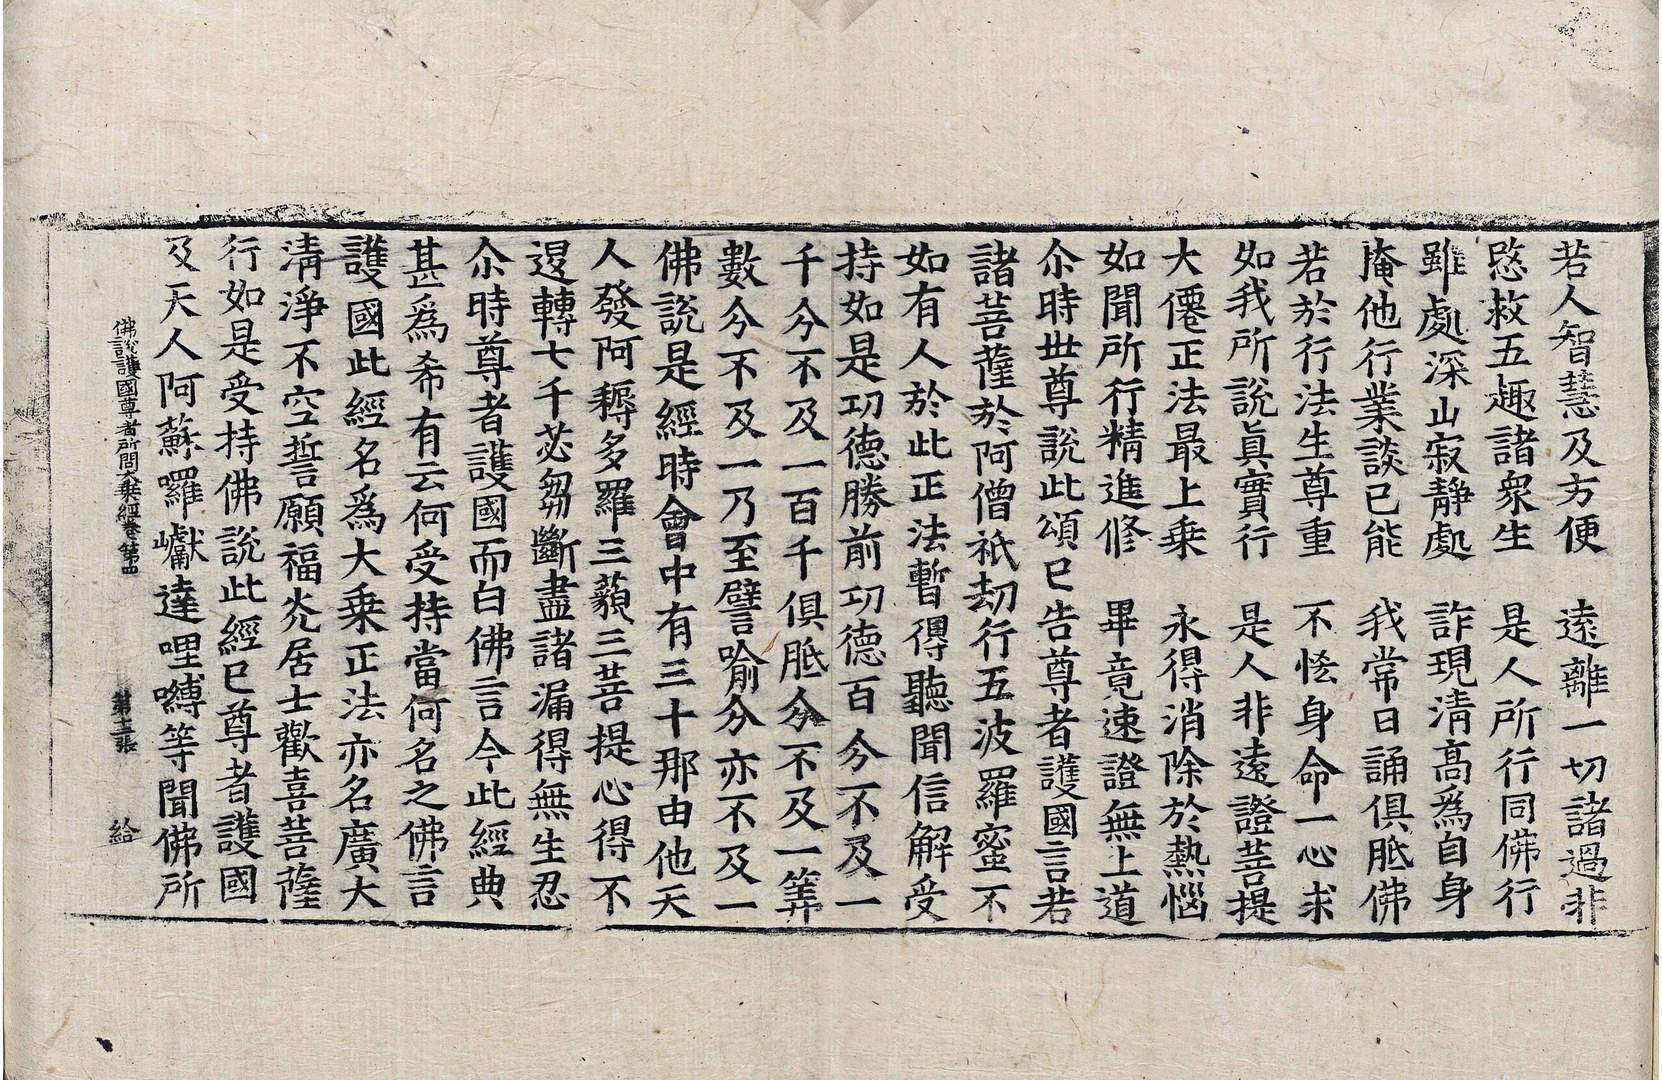 若人智慧及方便　遠離一切諸過非
愍救五趣諸衆生　是人所行同佛行
雖處深山寂静處　詐現清高爲自身
掩他行業談已能　我常日誦俱胝佛
若於行法生尊重　不恡身命一心求
如我所說眞實行　是人非遠證菩提
大僊正法最上乗　永得消除於熱惱
如聞所行精進修　畢竟速證無上道
尒時世尊說此頌已告尊者護國言若
諸菩薩於阿僧祇劫行五波羅蜜不
如有人於此正法暫得聽聞信解受
持如是功德勝前功德百分不及一
千分不及一百千俱胝分不及一筭
數分不及一乃至譬喻分亦不及一
佛說是經時會中有三十那由他天
人發阿耨多羅三藐三菩提心得不
退轉七千苾芻斷盡諸漏得無生忍
尒時尊者護國而白佛言今此經典
甚爲希有云何受持當何名之佛言
護國此經名爲大乗正法亦名廣大
清淨不空誓願福光居士歡喜菩薩
行如是受持佛說此經已尊者護國
及天人阿蘇囉巘達哩嚩等聞佛所
佛說護國尊者所問大乗經卷第四　第十三張　給